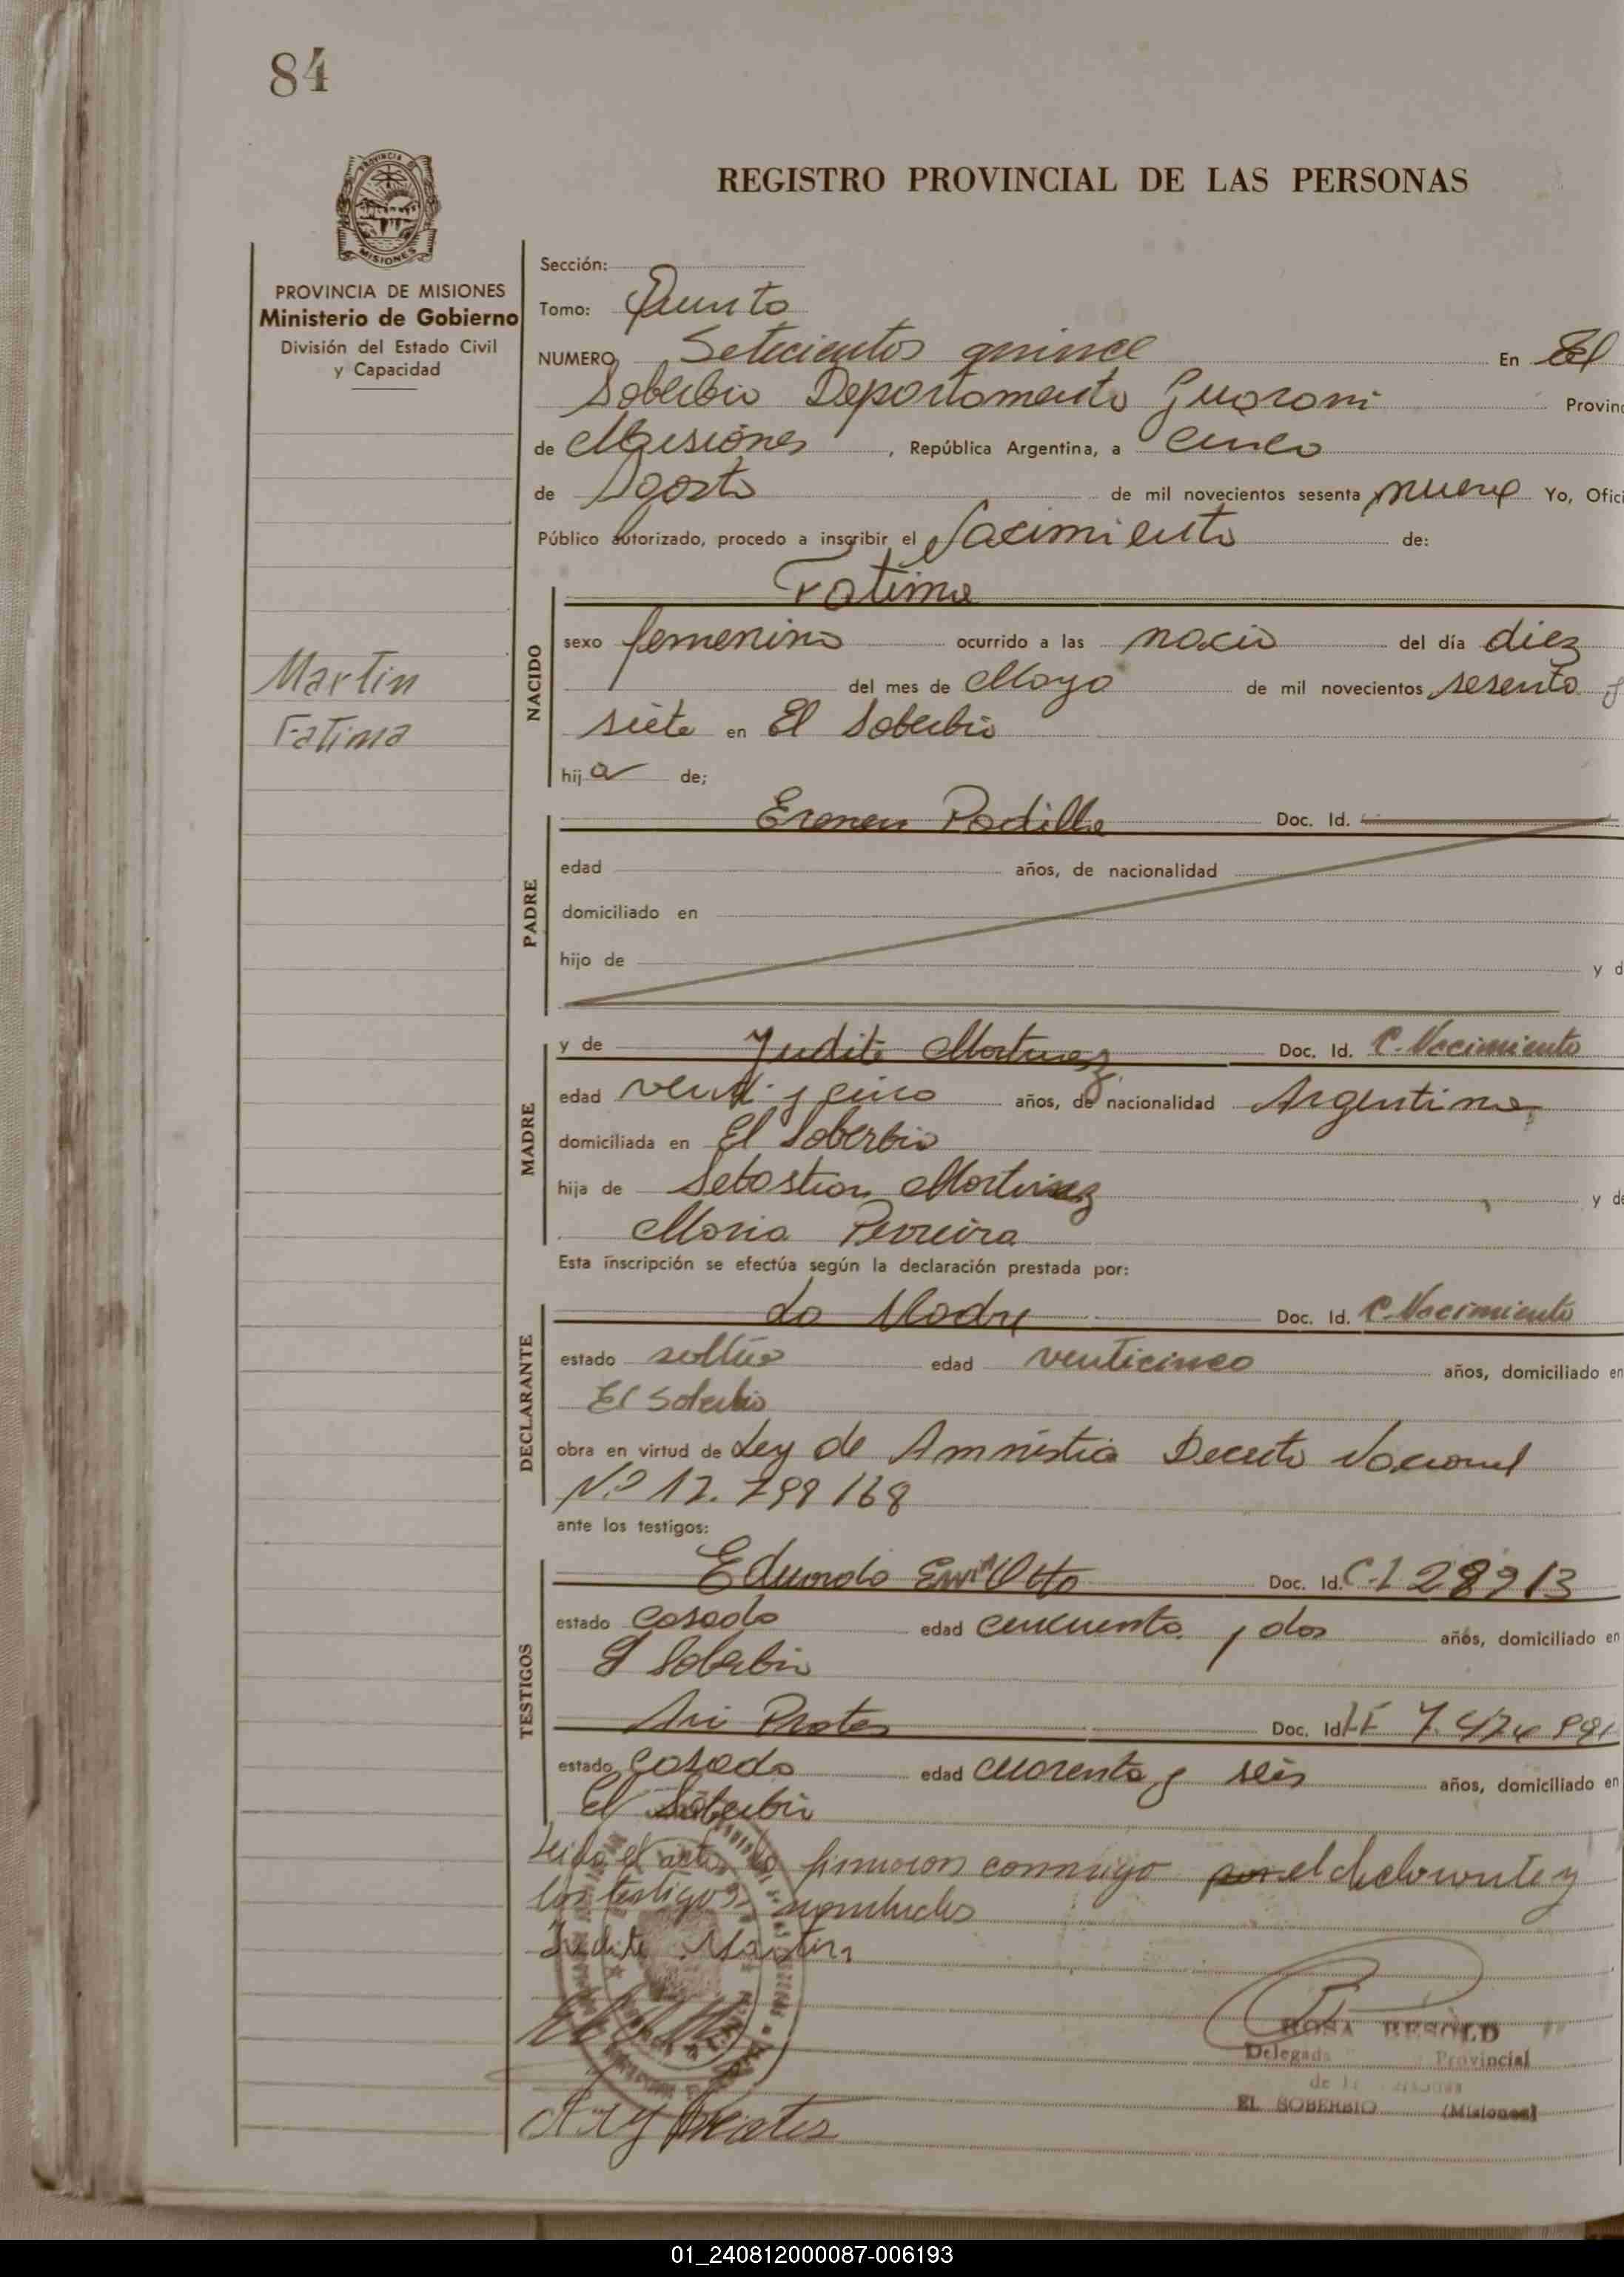 84
REGISTRO PROVINCIAL DE LAS PERSONAS
PROVINCIA DE MISIONES
Ministerio de Gobierno
División del Estado Civil
y Capacidad
Martin
Fatima
Sección:
Tomo: Quinto
NUMERO Setecientos quince En El
Soberbio Departamento Guarani Provinc
de Misiónes , República Argentina, a cinco
de Agosto de mil novecientos sesenta nueve Yo, Ofici
Público autorizado, procedo a inscribir el Nacimiento de:
NACIDO
Fatima
sexo femenino ocurrido a las nacio del día diez
del mes de Mayo de mil novecientos sesenta y
siete en El Soberbio
hij a de;
PADRE
Padilla Doc. Id.
edad años, de nacionalidad
domiciliado en
hijo de y d
MADRE
y de Judite Martinez Doc. Id. C. Nacimiento
edad venti y cinco años, de nacionalidad Argentina
domiciliada en El Soberbio
hija de Sebastian Martinez y de
Maria Perreira
Esta inscripción se efectúa según la declaración prestada por:
DECLARANTE
La Madre Doc. Id. C. Nacimiento
estado soltera edad venticinco años, domiciliado en
El Soberbio
obra en virtud de Ley de Amnistia Decreto Nacional
Nº 17.799/68
ante los testigos:
TESTIGOS
Eduardo Ewin Otto Doc. Id. C.I 28913
estado casado edad cincuenta y dos años, domiciliado en
El Soberbio
Ari Prates Doc. Id LE 7.
estado casado edad cuarenta y seis años, domiciliado en
El Soberbio
Leida el acta la firmaron conmigo por el declarante y
los testigos nombrados
Judite Martin
Ary Prates
ROSA BESOLD
Delegada Provincial
de las Personas
EL SOBERBIO (Misiones)
01_240812000087-006193